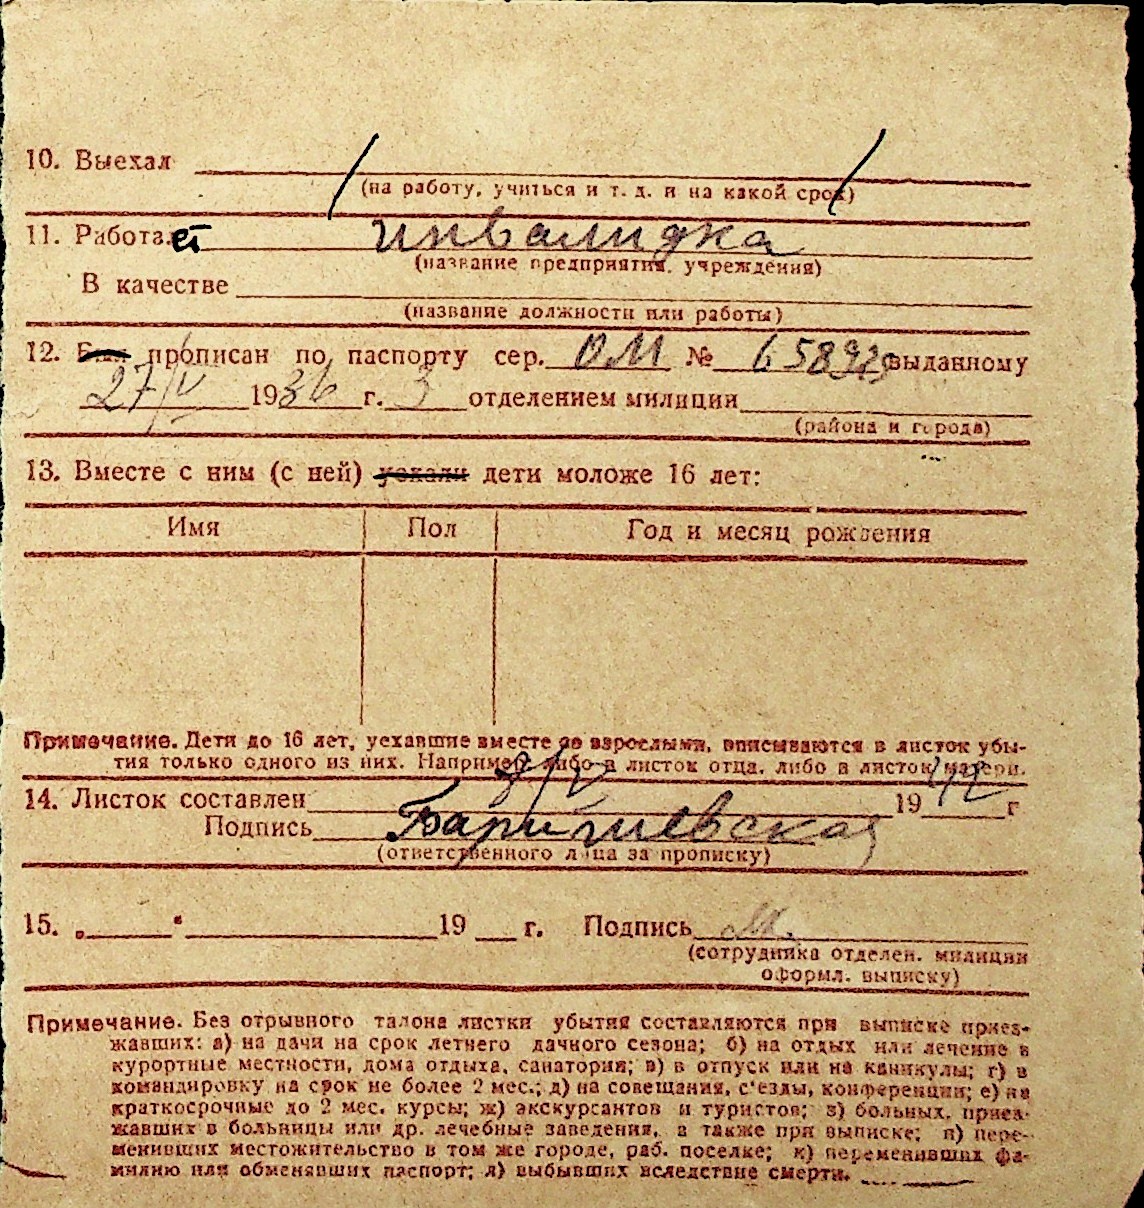 10. Выехал
(на работу, учиться и т. д. и на какой срок)
11. Работает инвалидка
(название предприятия, учреждения)
В качестве
(название должности или работы)
12. Был прописан по паспорту сер. ОМ № 658929 выданному
27/V 1936 г. 3 отделением милиции
(района и города)
13. Вместе с ним (с ней) уехали дети моложе 16 лет:
Имя Пол Год и месяц рождения
Примечание. Дети до 16 лет, уехавшие вместе со взрослыми, вписываются в листок убы-
тия только одного из них. Например либо в листок отца, либо в листок матери.
14. Листок составлен 8/V 1942 г
Подпись
(ответственного лица за прописку)
15. „ " 19 г. Подпись
(сотрудника отделен. милиции
оформл. выписку)
Примечание. Без отрывного талона листки убытия составляются при выписке приез-
жавших: а) на дачи на срок летнего дачного сезона; б) на отдых или лечение в
курортные местности, дома отдыха, санатории; в) в отпуск или на каникулы; г) в
командировку на срок не более 2 мес.; д) на совещания, с'езды, конференции; е) на
краткосрочные до 2 мес. курсы; ж) экскурсантов и туристов; з) больных, приез-
жавших в больницы или др. лечебные заведения, а также при выписке; и) пере-
менивших местожительство в том же городе, раб. поселке; к) переменивших фа-
милию или обменявших паспорт; л) выбывших вследствие смерти.